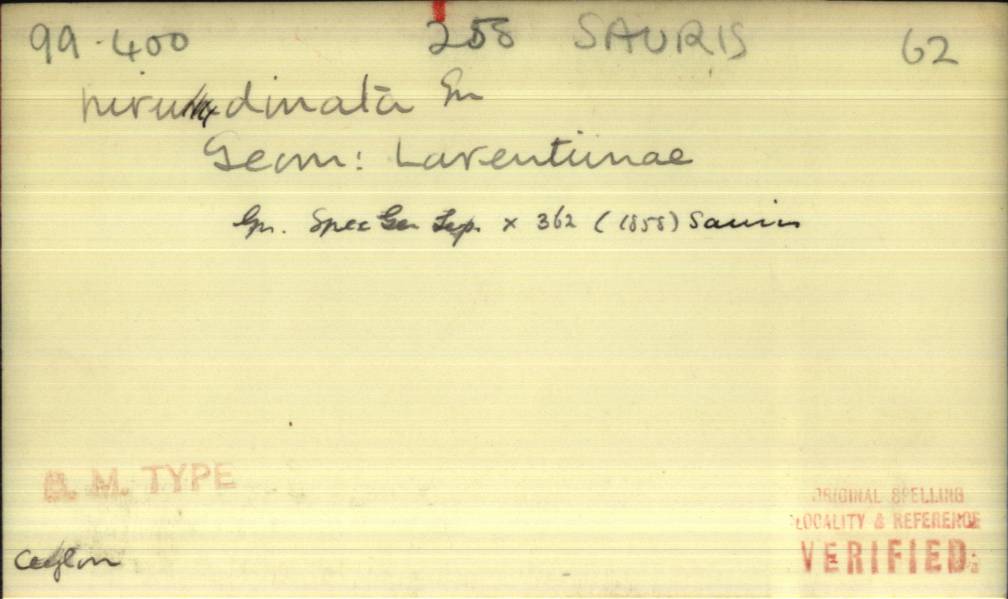 99.400 258 SAURIS 62
hirundinata Gn
Geom: Larentiinae
Gn. Spec Gen Lep. x 362 (1858) Sauris
B. M. TYPE
ORIGINAL SPELLING
LOCALITY & REFERENCE
VERIFIED
Ceylon